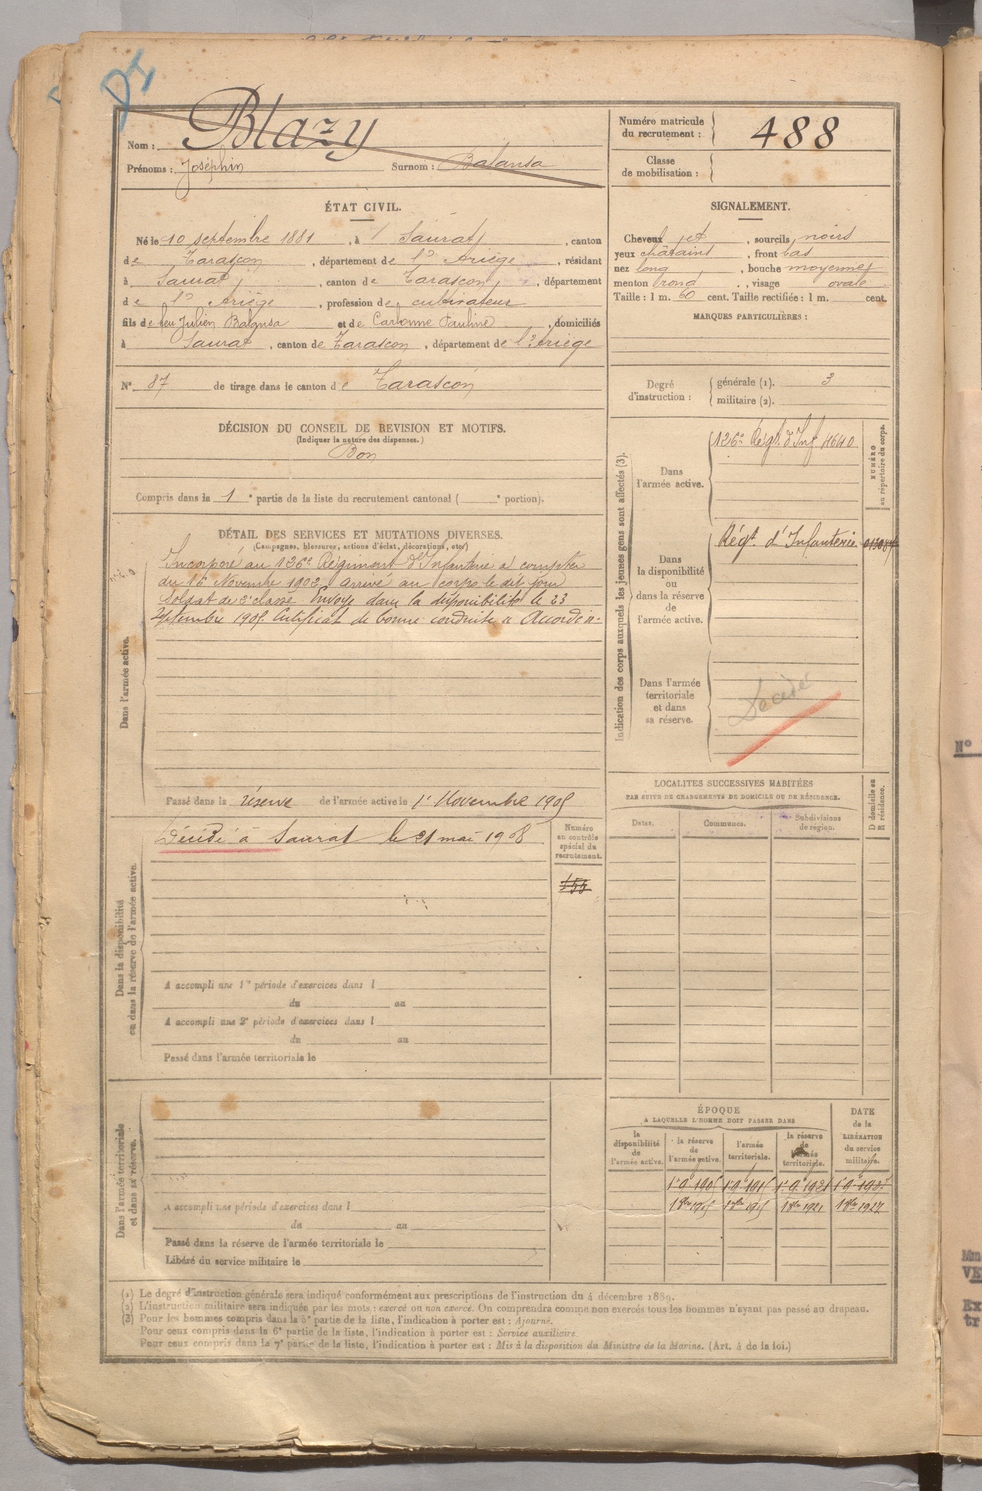 DI
Nom : Blazy
Prénoms : Joséphin Surnom : Balansa
Numéro matricule du recrutement : 488
Classe de mobilisation :
ÉTAT CIVIL.
Né le 10 septembre 1881, à Saurat, canton
de Tarascon, département de l'Ariège, résidant
à Saurat, canton de Tarascon, département
de l'Ariège, profession de cultivateur
fils de feu Julien Balansa et de Carbonne Pauline, domiciliés
à Saurat, canton de Tarascon, département de l'Ariège
N° 87 de tirage dans le canton de Tarascon
SIGNALEMENT.
Cheveux jet, sourcils noirs
yeux châtains, front bas
nez long, bouche moyenne
menton rond, visage ovale
Taille : 1 m. 60 cent. Taille rectifiée : 1 m. cent.
MARQUES PARTICULIÈRES :
Degré d'instruction : générale (1). 3
militaire (2).
DÉCISION DU CONSEIL DE REVISION ET MOTIFS.
(Indiquer la nature des dispenses.)
Bon
Compris dans la 1e partie de la liste du recrutement cantonal ( e portion).
DÉTAIL DES SERVICES ET MUTATIONS DIVERSES.
(Campagnes, blessures, actions d'éclat, décorations, etc.)
Dans l'armée active.
Incorporé au 126e Régiment d'Infanterie à compter
du 16 Novembre 1902, arrivé au corps le dit jour
Soldat de 2e classe. Envoyé dans la disponibilité le 23
Septembre 1905. Certificat de bonne conduite "Accordé".
Passé dans la réserve de l'armée active le 1er Novembre 1905
Indication des corps auxquels les jeunes gens sont affectés (3).
NUMÉRO au répertoire du corps.
Dans l'armée active.
126e Régt d'Inf 4640
Dans la disponibilité ou dans la réserve de l'armée active.
Régt d'Infanterie
Dans l'armée territoriale et dans sa réserve.
Décédé
Dans la disponibilité ou dans la réserve de l'armée active.
Décédé à Saurat le 21 mai 1908
Numéro au contrôle spécial du recrutement.
A accompli une 1re période d'exercices dans l
du au
A accompli une 2e période d'exercices dans l
du au
Passé dans l'armée territoriale le
LOCALITES SUCCESSIVES HABITÉES
PAR SUITE DE CHANGEMENTS DE DOMICILE OU DE RÉSIDENCE.
Dates. Communes. Subdivisions de région. D domicile ou R résidence.
Dans l'armée territoriale et dans sa réserve.
A accompli une période d'exercices dans l
du au
Passé dans la réserve de l'armée territoriale le
Libéré du service militaire le
ÉPOQUE
A LAQUELLE L'HOMME DOIT PASSER DANS
la disponibilité de l'armée active. la réserve de l'armée active. l'armée territoriale. la réserve de l'armée territoriale.
DATE de la LIBÉRATION du service militaire.
(1) Le degré d'instruction générale sera indiqué conformément aux prescriptions de l'instruction du 4 décembre 1889.
(2) L'instruction militaire sera indiquée par les mots : exercé ou non exercé. On comprendra comme non exercés tous les hommes n'ayant pas passé au drapeau.
(3) Pour les hommes compris dans la 5e partie de la liste, l'indication à porter est : Ajourné.
Pour ceux compris dans la 6e partie de la liste, l'indication à porter est : Service auxiliaire.
Pour ceux compris dans la 7e partie de la liste, l'indication à porter est : Mis à la disposition du Ministre de la Marine. (Art. 4 de la loi.)
N°